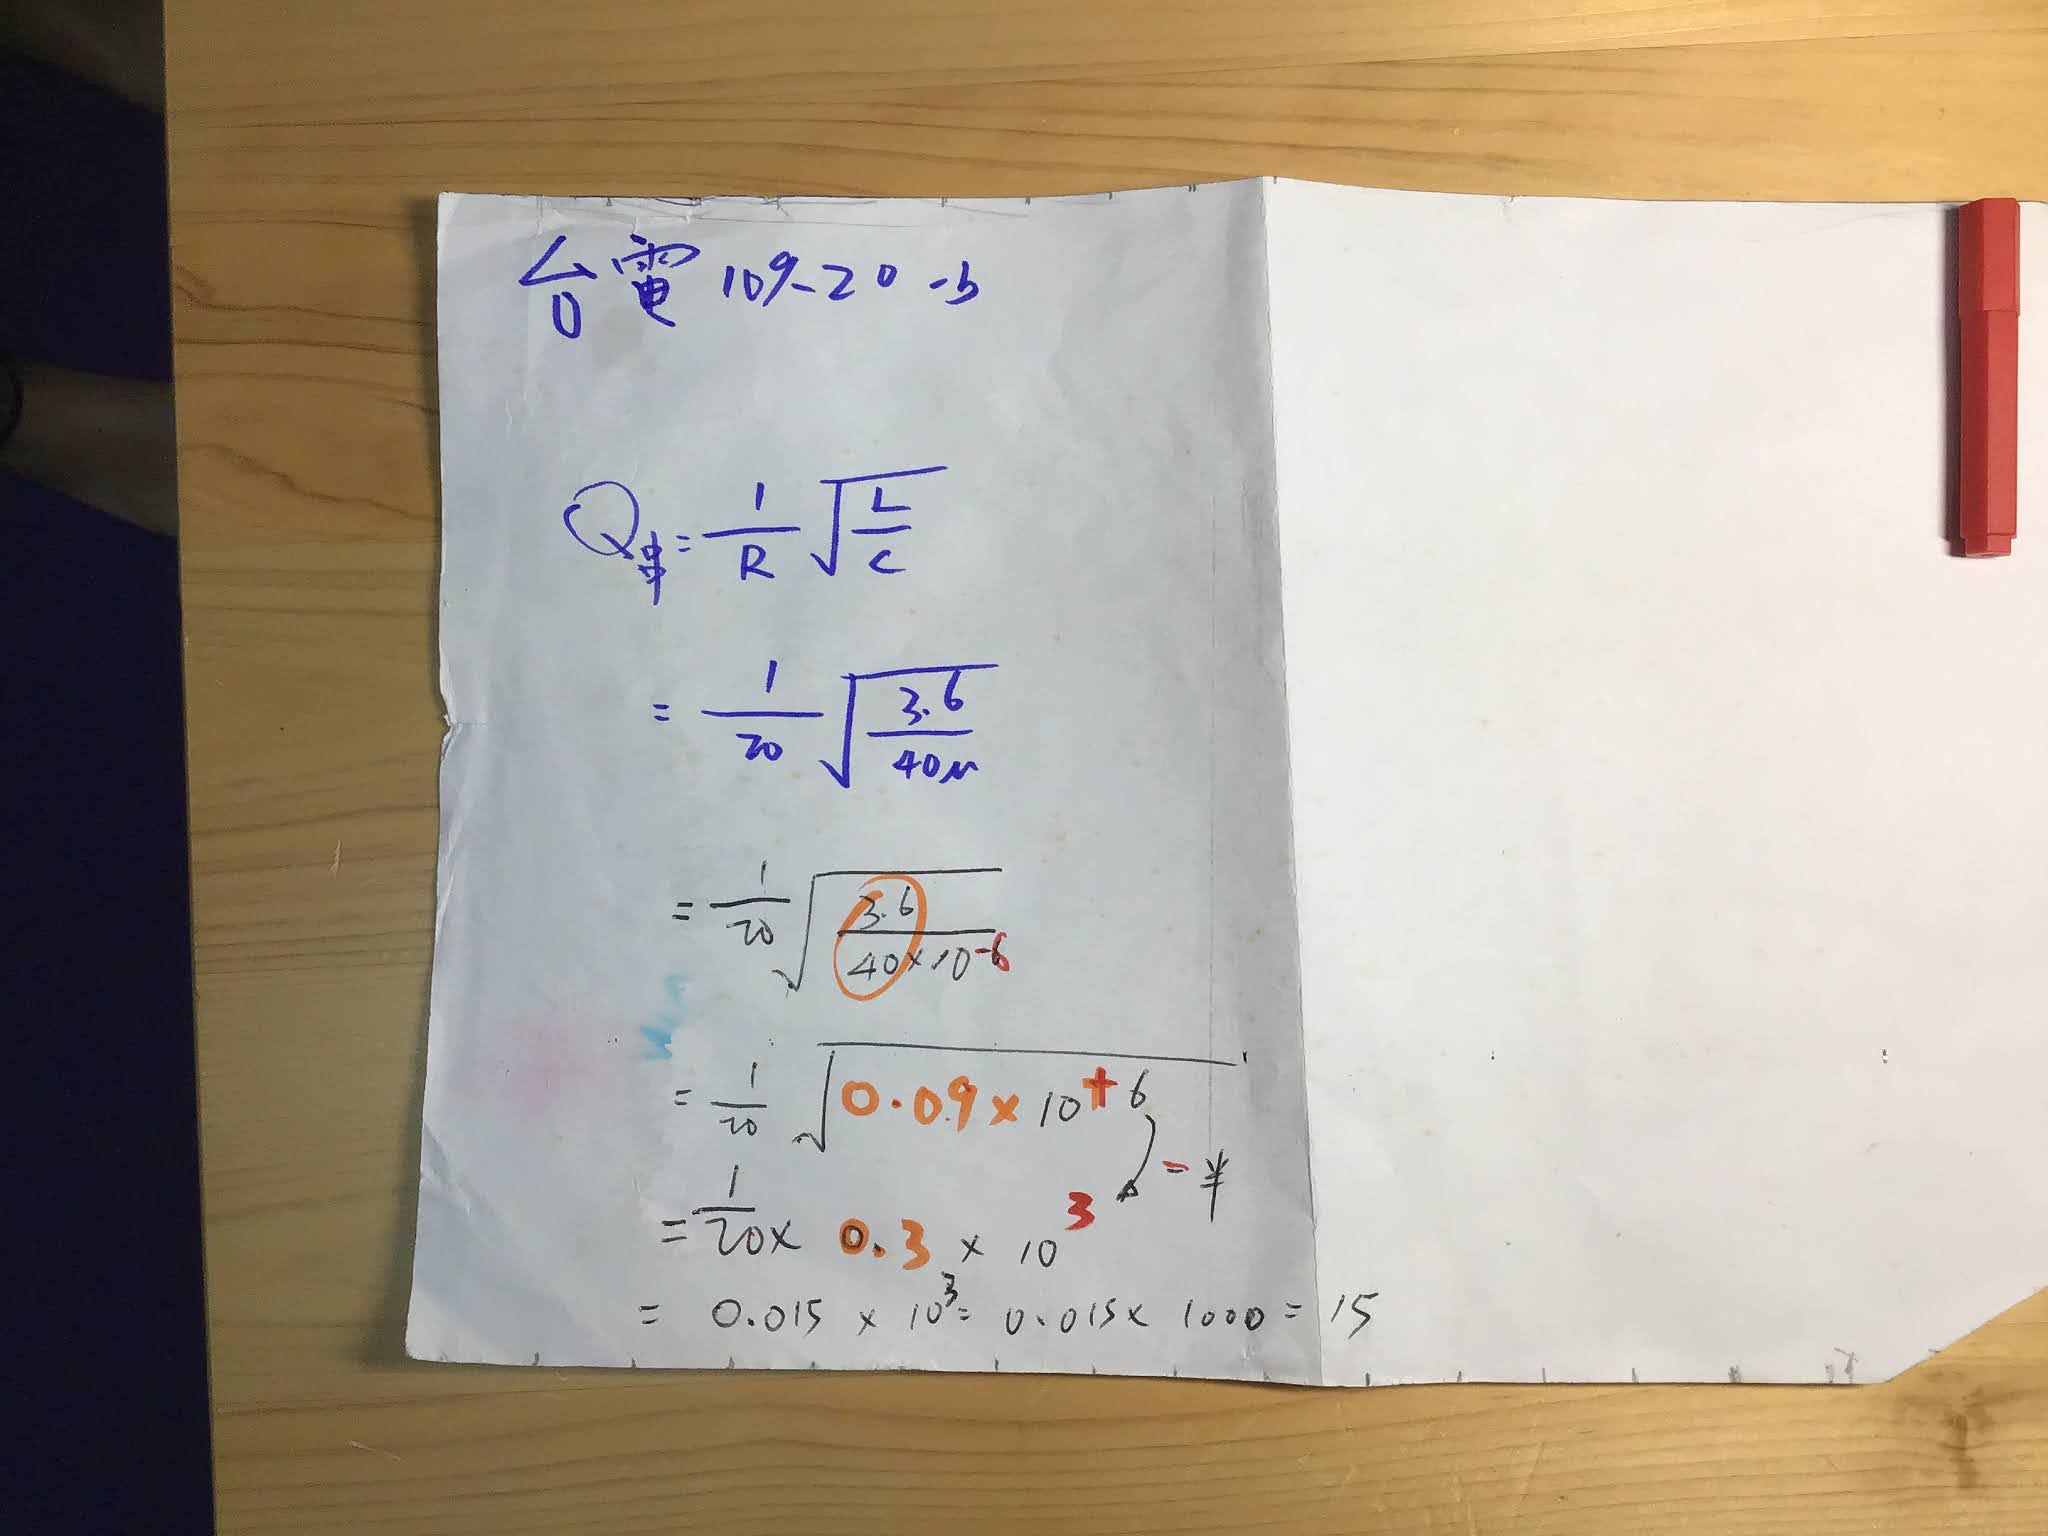 台電 109-20-b
Q串 = 1/R √(L/C)
= 1/20 √(3.6/40μ)
= 1/20 √(3.6/40×10^-6)
= 1/20 √(0.09×10^+6)
= 半
= 1/20 × 0.3 × 10^3
= 0.015 × 10^3 = 0.015 × 1000 = 15